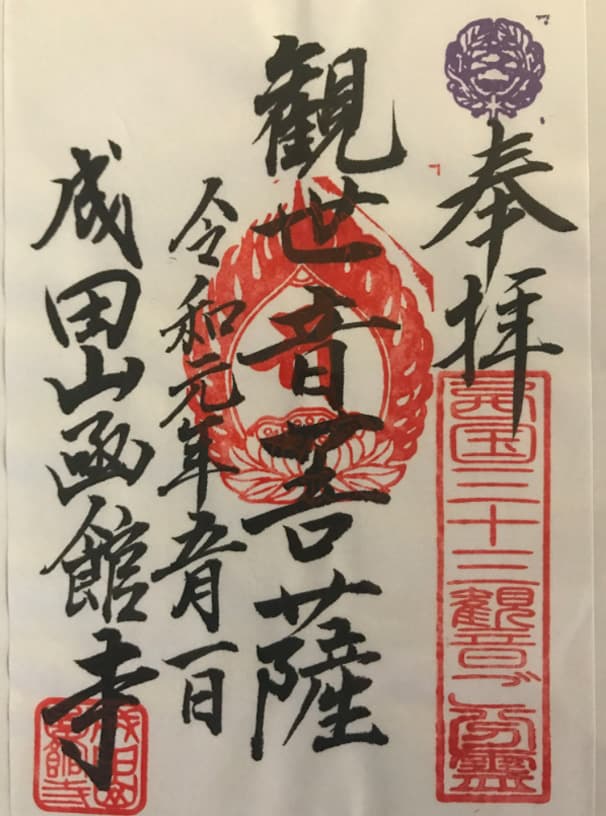 奉拝
国三十三観音
観世音菩薩
令和元年五月一日
成田山函館寺
成田山
函館寺